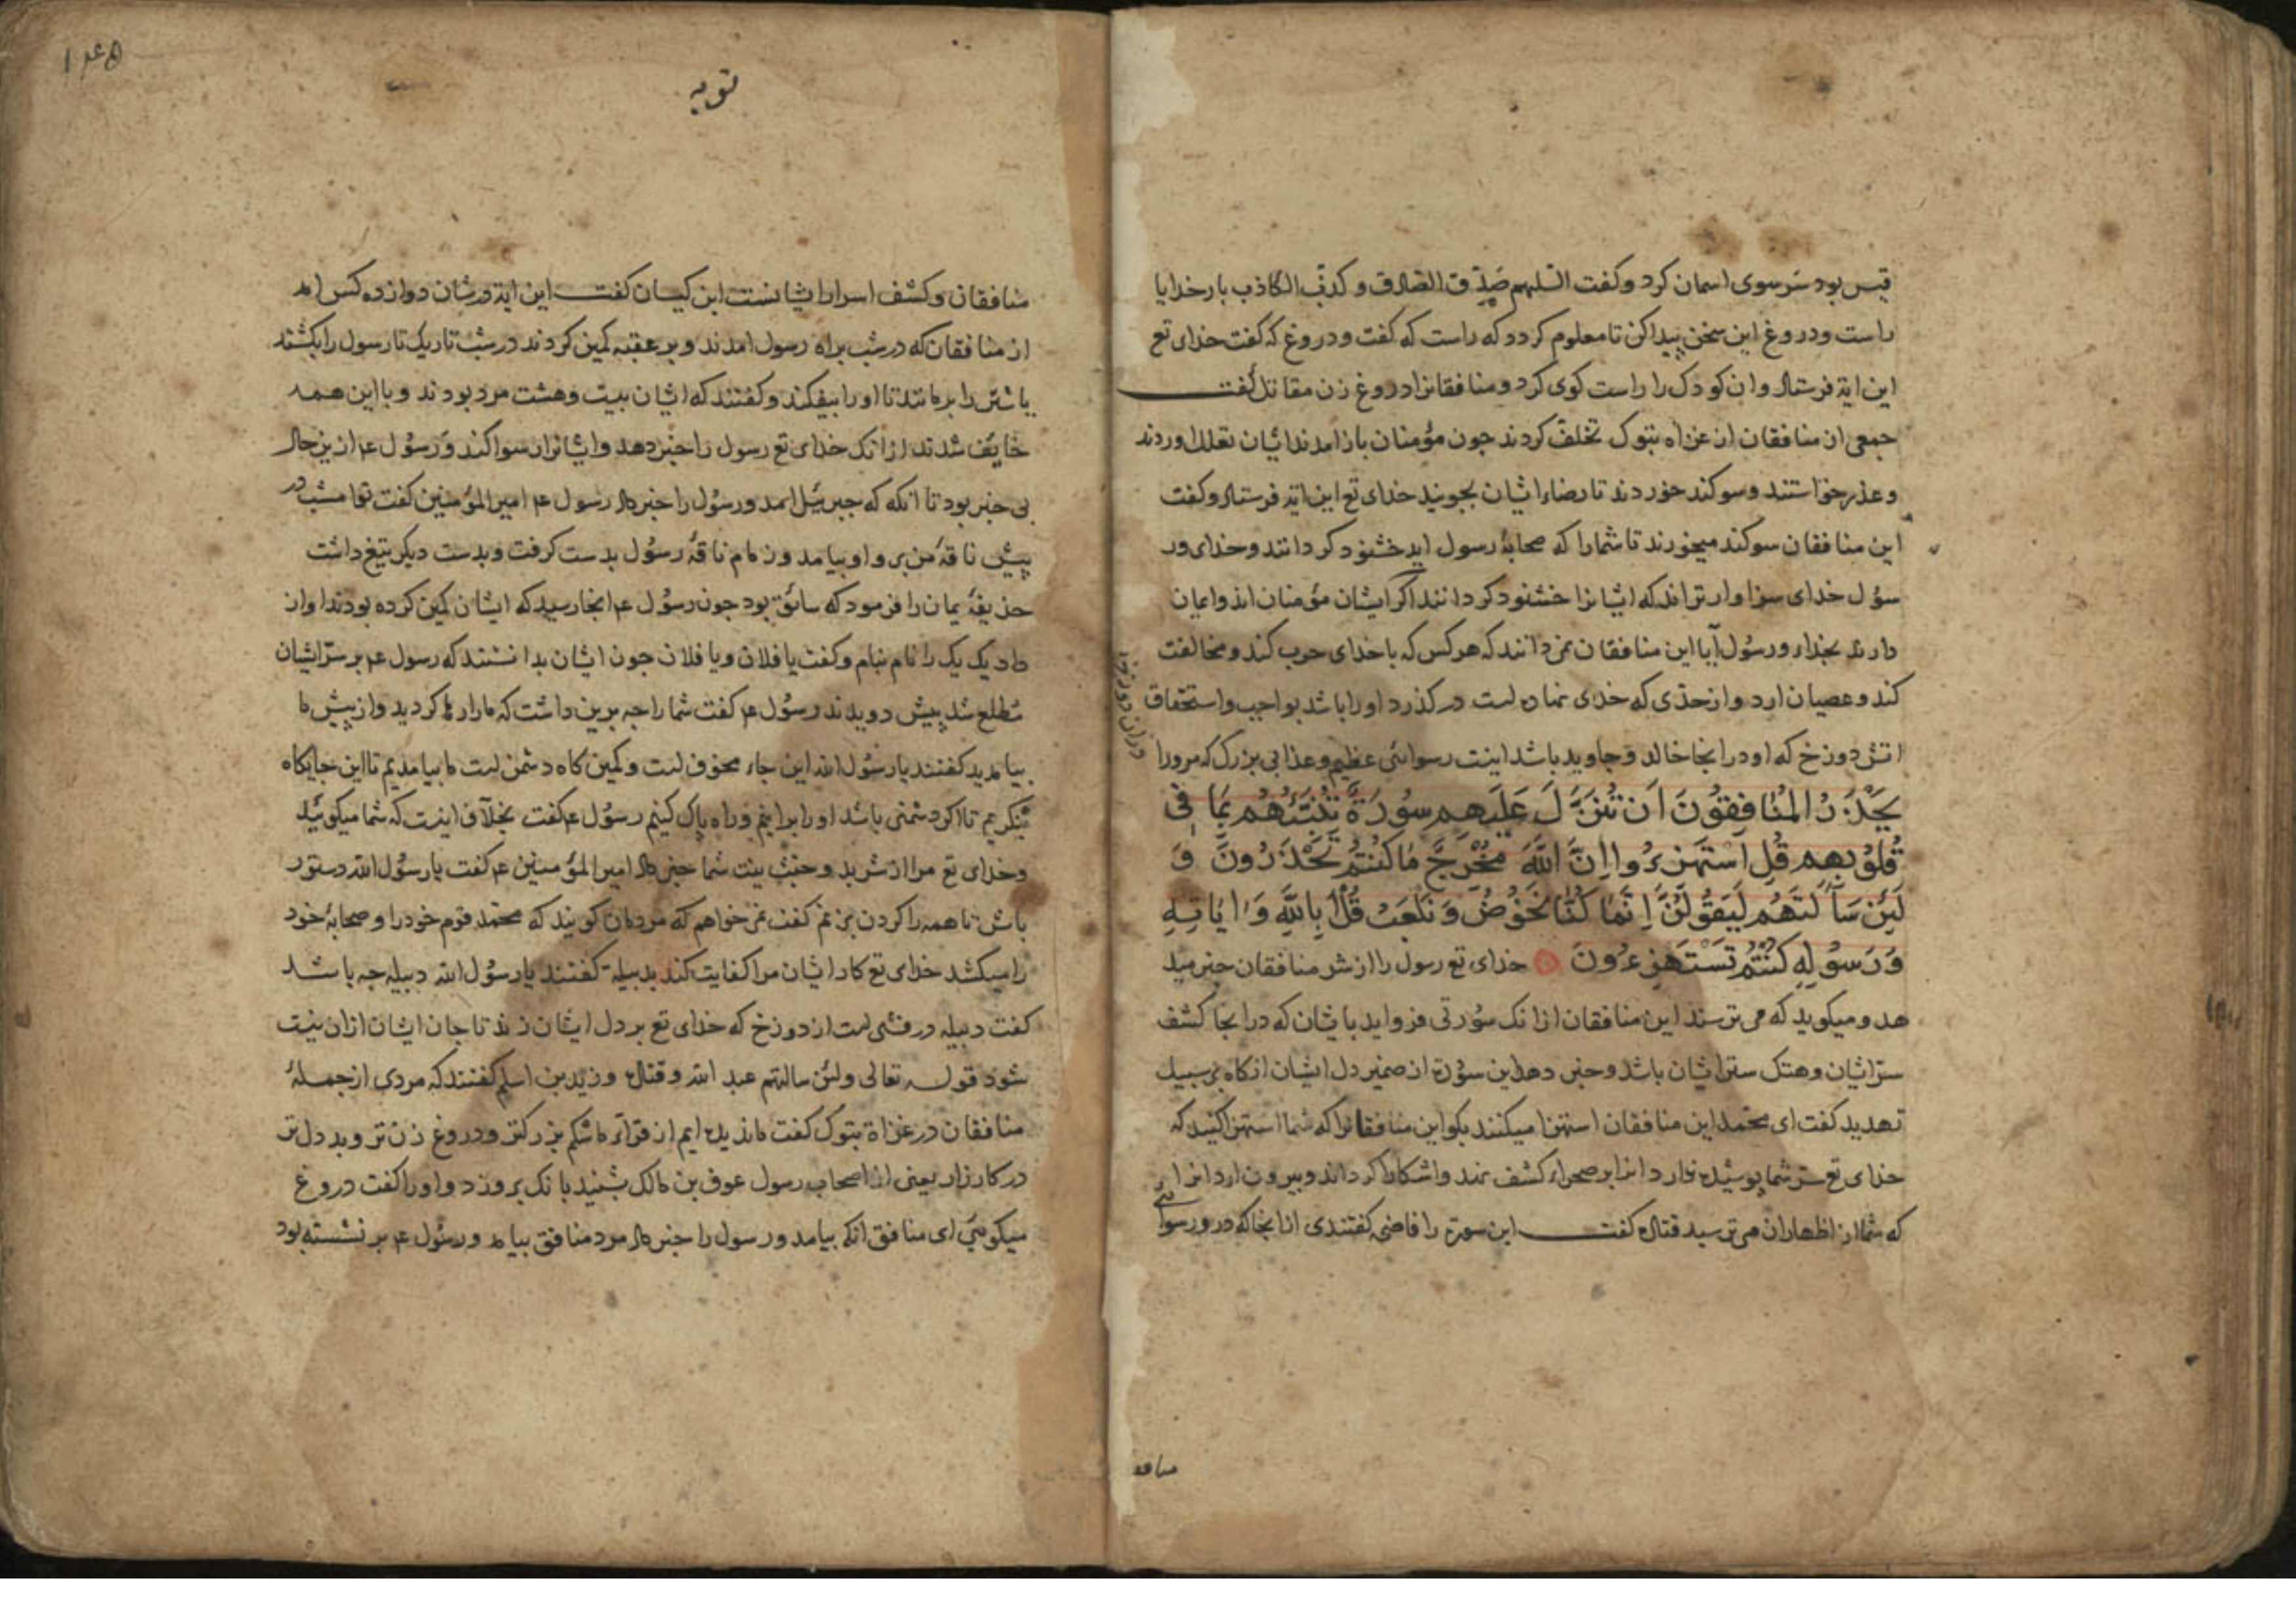 قیس بود سر سوی اسمان کرد و کفت اللهم صدّق الصادق و کذّب الکاذب بار خدایا
راست و دروغ این سخن پیدا کن تا معلوم کردد که راست که کفت و دروغ که کفت خدای تع
این ایة فرستاد و ان کودک را راست کوی کرد و منافقانرا دروغ زن مقاتل کفت
جمعی از منافقان از غزاه تبوک تخلف کردند جون مؤمنان باز امدند ایشان تعلل اوردند
و عذر خواستند و سوکند خوردند تا رضاء ایشان بجویند خدای تع این ایة فرستاد و کفت
این منافقان سوکند میخورند تا شما را که صحابۀ رسول اید خشنود کردانند و خدای ور
سؤل خدای سزاوارتراند که ایشانرا خشنود کردانند اکر ایشان مؤمنان اند و ایمان
دارند بخدای و رسول آیا این منافقان نمی دانند که هر کس که با خدای حرب کند و مخالفت
کند و عصیان ارد و از حدّی که خدای نهاده است در کذرد او را باشد بواجب و استحقاق
اتش دوزخ که او در انجا خالد و جاوید باشد اینت رسوائی عظیم و عذابی بزرک که مرورا
یَحْذَرُ المُنافِقُونَ اَن تُنَزَّلَ عَلَیهِم سُورَةٌ تُنَبِّئُهُم بِمَا فِی
قُلُوبِهِم قُلِ اسْتَهزِءُوا اِنَّ اللَّهَ مُخْرِجٌ مَا کُنتُم تَحْذَرُونَ وَ
لَئِن سَأَلتَهُم لَیَقُولُنَّ اِنَّمَا کُنَّا نَخُوضُ وَ نَلعَبُ قُل اَبِاللَّهِ وَ ایَاتِهِ
وَ رَسُولِهِ کُنتُم تَسْتَهزِءُونَ خدای تع رسول را از شر منافقان خبر مید
هد و میکوید که می ترسند این منافقان از انک سورتی فرو اید بایشان که در انجا کشف
سرّ ایشان و هتک ستر ایشان باشد و خبر دهد این سورة از ضمیر دل ایشان انکاه بر سبیل
تهدید کفت ای محمد این منافقان استهزا میکنند بکو این منافقانرا که شما استهزا کنید که
خدای تع سرّ شما پوشیده ندارد انرا بر صحراء کشف نهد و اشکارا کرداند و بیرون ارد انرا
که شما از اظهار ان می ترسید قتاده کفت این سورة را فاضحه کفتندی از انجا که در و رسوائی
منافقا
توبه
منافقان و کشف اسرار ایشانست ابن کیسان کفت این ایة در شان دوازده کس امد
از منافقان که در شب براه رسول امدند و بر عقبه کمین کردند در شب تاریک تا رسول را بکشند
یا شتر را برمانند تا او را بیفکند و کفتند که ایشان بیست و هشت مرد بودند و با این همه
خایف شدند از انک خدای تع رسول را خبر دهد و ایشانرا رسوا کند و رسول ع از ین حال
بی خبر بود تا انکه که جبرئیل امد و رسول را خبر داد رسول ع امیر المؤمنین کفت تو امشب در
پیش ناقۀ من برو او بیامد و زمام ناقۀ رسول بدست کرفت و بدست دیکر تیغ داشت
حذیفۀ یمان را فرمود که سائق بود جون رسول ع انجا رسید که ایشان کمین کرده بودند اواز
داد یک یک را نام بنام و کفت یا فلان و یا فلان جون ایشان بدانستند که رسول ع بر سرّ ایشان
مطلع شد پیش دویدند رسول ع کفت شما را جه برین داشت که ما را رها کردید و از پیش ما
بیامدید کفتند یا رسول الله این جاء مخوف است و کمین کاه دشمن است ما بیامدیم تا این جایکاه
بنکریم تا اکر دشمنی باشد او را برانیم و راه پاک کنیم رسول ع کفت بخلاف اینست که شما میکوئید
و خدای تع مرا از شر بد و خبث نیت شما خبر داد امیر المؤمنین ع کفت یا رسول الله دستور
باش تا همه را کردن بزنم کفت نمی خواهم که مردمان کویند که محمد قوم خود را و صحابۀ خود
را میکشد خدای تع کار ایشان مرا کفایت کند بدبیله کفتند یا رسول الله دبیله جه باشد
کفت دبیله درفشی است از دوزخ که خدای تع بر دل ایشان زند تا جان ایشان ازان نیست
شود قوله تعالی ولئن سالتهم عبد الله و قتاده و زید بن اسلم کفتند که مردی از جملۀ
منافقان در غزاة تبوک کفت ما ندیده ایم از قراء ما شکم بزرکتر و دروغ زن تر و بد دل تر
در کارزار یعنی از اصحاب رسول عوف بن مالک بشنید بانک بروزد و او را کفت دروغ
میکوئی ای منافق انکه بیامد و رسول را خبر داد مرد منافق بیامد و رسول ع بر نشسته بود